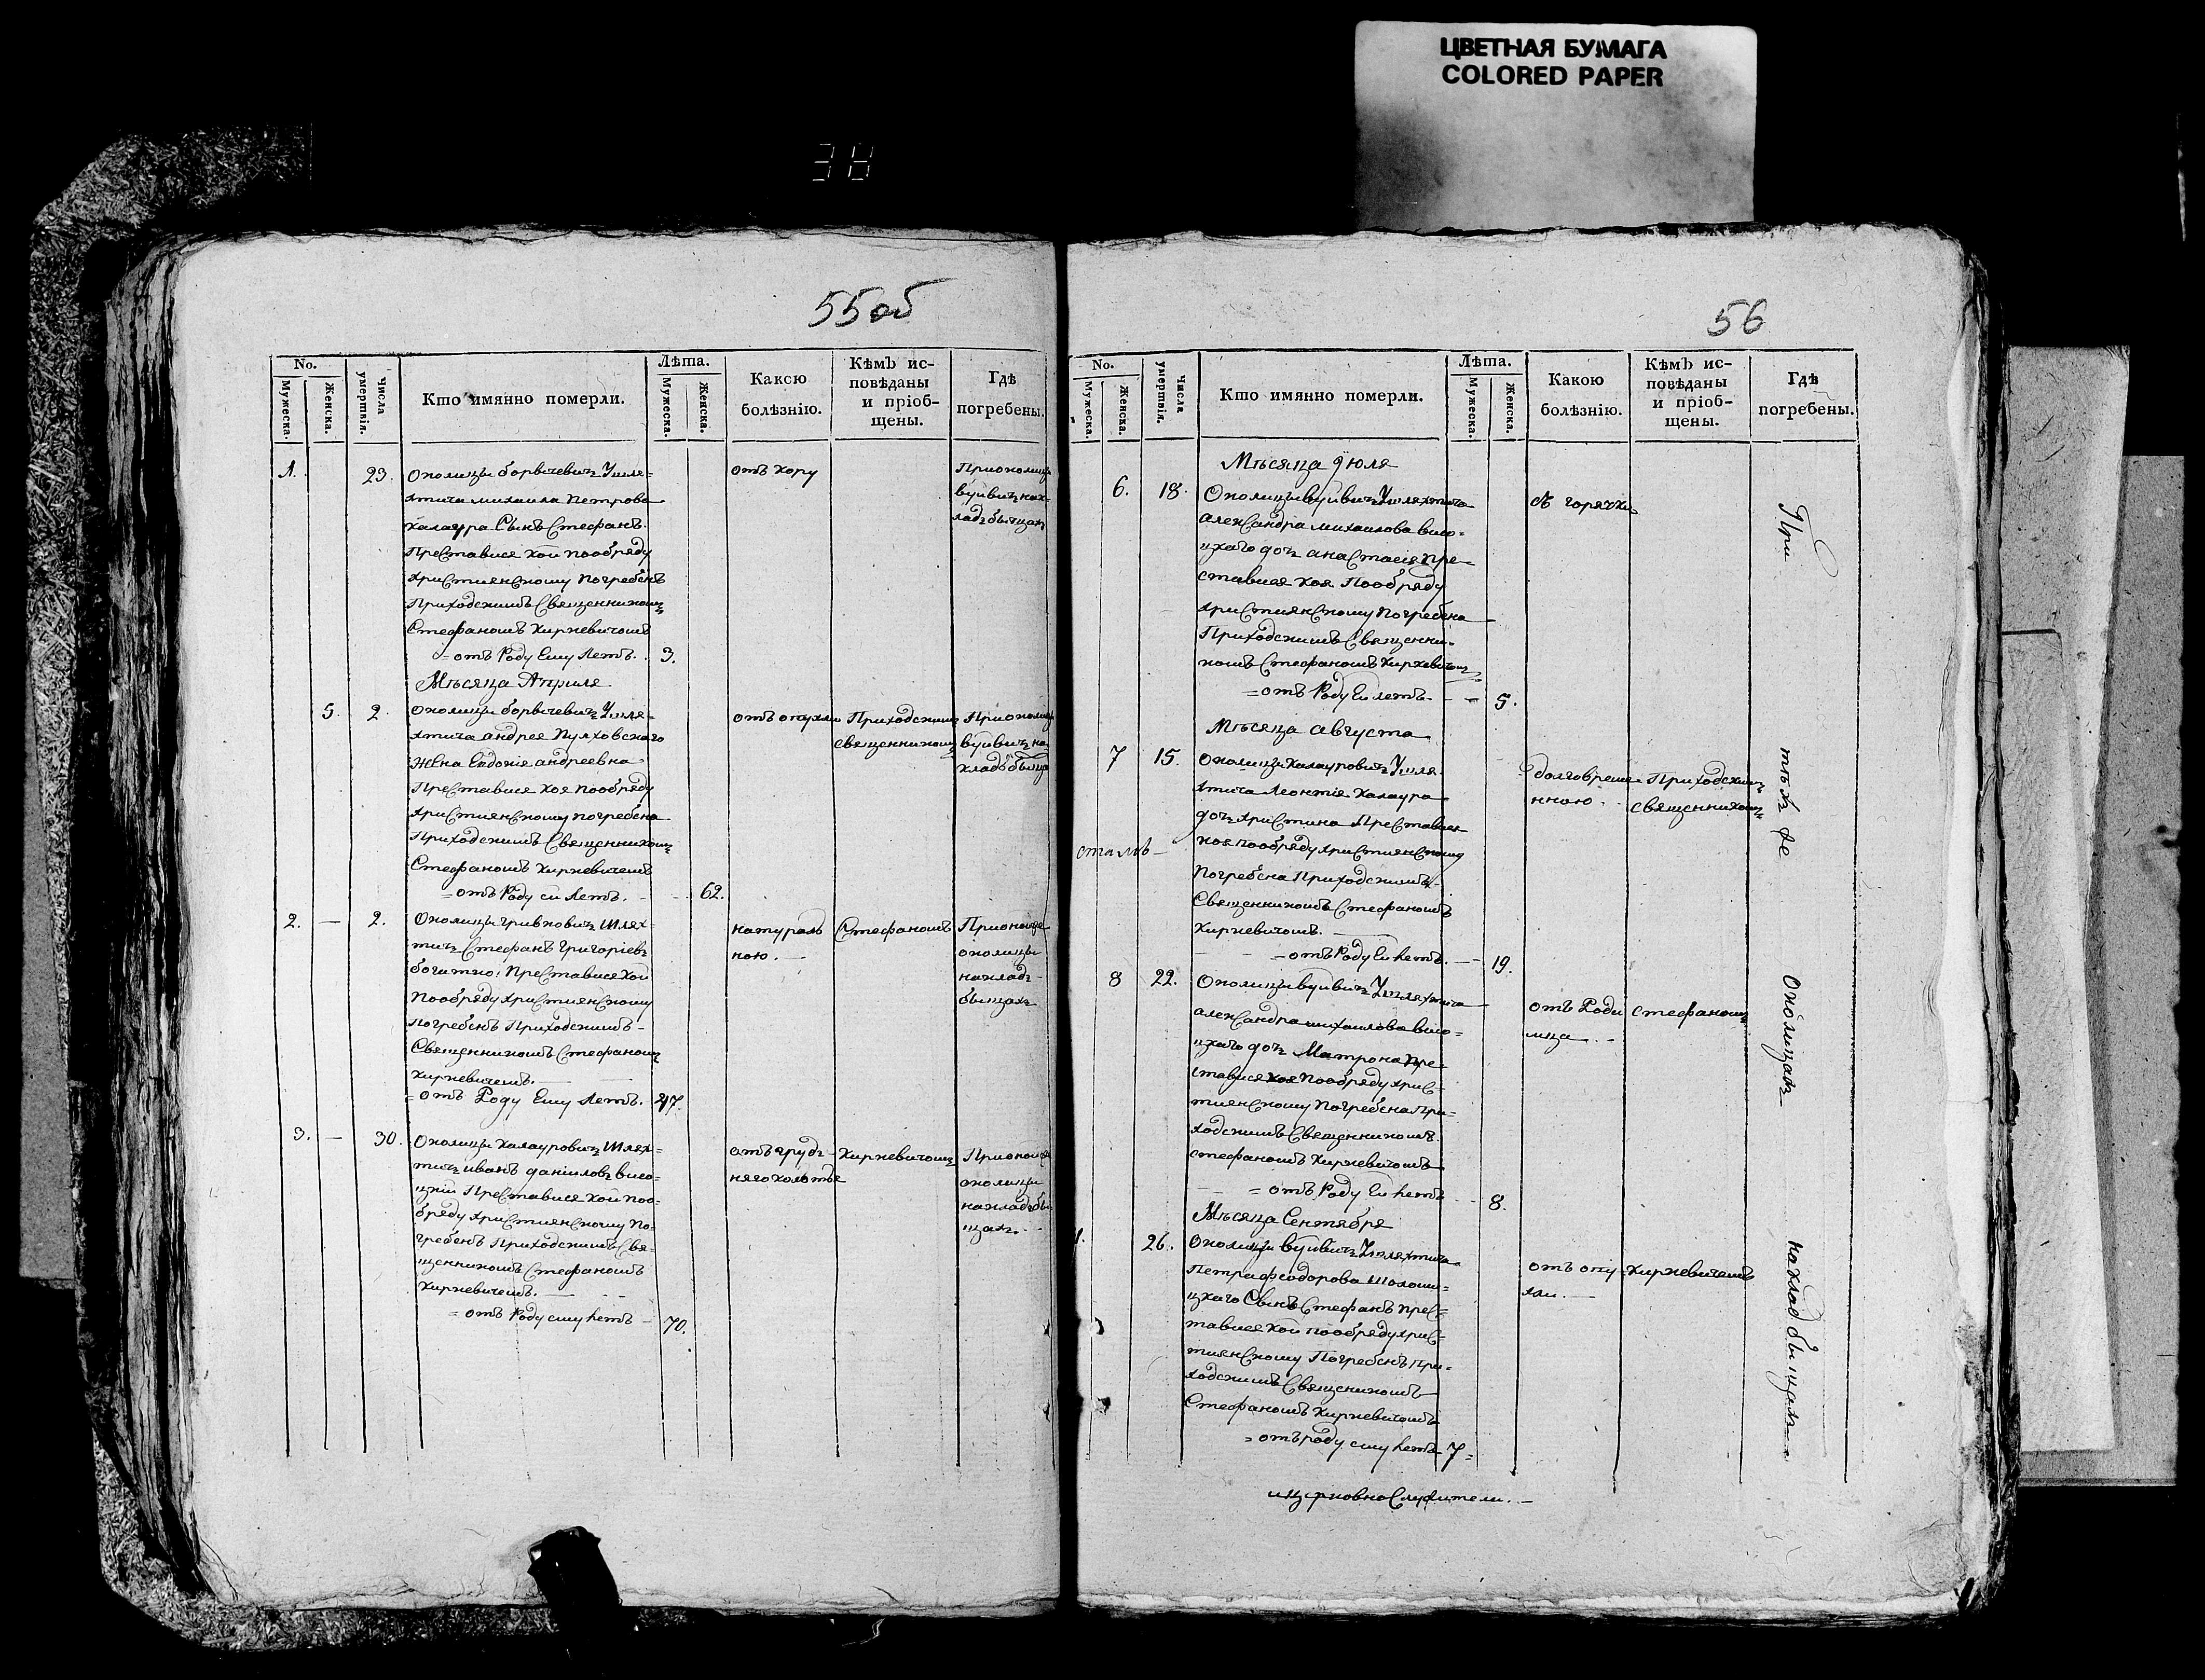 ЦВЕТНАЯ БУМАГА
COLORED PAPER
38
55 об
No.
Мужеска.
Женска.
Числа умертвія.
Кто имянно померли.
Лѣта.
Мужеска.
Женска.
Какою болѣзнію.
Кѣмъ ис-
повѣданы
и пріоб-
щены.
Гдѣ
погребены.
1. 23. Околицы борвичевичъ У шля=
хтича михаила Петрова
калаура Сынъ Стефанъ.
Преставися кой пообряду
християнскому погребенъ
Приходскимъ Священникомъ
Стефаномъ Киркевичомъ
= отъ Роду Ему Летъ. 3.
отъ кору
Приколицы
вуйвичъ нак-
ладъбыщахъ
Мѣсяца Априля
5. 2. Околицы борвичевичъ У шля=
хтича андрея Пулховскаго
Жена Евдокiя андреевна
Преставися коя пообряду
християнскому погребена
Приходскимъ Священникомъ
Стефаномъ Киркевичемъ
= отъ Роду ей Летъ. 62.
отъ опухли
Приходскимъ
священникомъ
Приоколицы
вуйвичъ на
кладъбыща
2. — 2. Околицы гривковичъ шлях=
тичъ Стефанъ Григоріевъ
богатко: Преставися кой
пообряду християнскому
Погребенъ Приходскимъ-
Священникомъ Стефаномъ
Киркевичемъ.
= отъ Роду Ему Летъ. 47.
натураль
ною.
Стефаномъ
околицы
накладъ-
быщахъ
3. — 30. Околицы Калауровичъ шлях=
тичъ иванъ даниловъ висо=
цкiи Преставися кой поо=
бряду християнскому по=
гребенъ Приходскимъ Свя=
щенникомъ Стефаномъ
Киркевичемъ.
= отъ Роду ему летъ 70.
отъ груд-
Киркевичомъ
околицы
накладъбы
щахъ.
56
No.
Мужеска.
Женска.
Числа умертвія.
Кто имянно померли.
Лѣта.
Мужеска.
Женска.
Какою
болѣзнію.
Кѣмъ ис-
повѣданы
и пріоб-
щены.
Гдѣ
погребены.
Мѣсяца Июля
6. 18. Околицы вуйвичъ У шляхтича
александра михаилова висо=
цкаго дочъ анастасiя пре=
ставися коя Пообряду
християнскому погребена
Приходскимъ Священни=
комъ Стефаномъ Киркевичомъ
= отъ Роду Ей летъ. 5.
горячки
Мѣсяца августа
7 15. Околицы Калауровичъ У шля
хтича Леонтiя Калаура
дочъ христина Преставися
коя пообряду християнскому
Погребена Приходскимъ
Священникомъ Стефаномъ
Киркевичомъ.
= отъ Роду Ей летъ. 19.
долговреме=
нною.
Приходскимъ
священникомъ
8 22. Околицы вуйвичъ У шляхтича
александра михаилова висо=
цкаго дочъ Матрона Пре=
ставися коя пообряду хрис=
тиянскому погребена При=
ходскимъ Священникомъ.
стефаномъ Киркевичомъ
= отъ Роду Ей летъ 8.
отъ Роди
мца.
стефаномъ
Мѣсяца Сентября
26. Околицы вуйвичъ У шляхтича
Петра феодорова
цкаго Сынъ Стефанъ прес=
тавися кой пообряду хрис=
тиянскому Погребенъ При=
ходскимъ Священикомъ
Стефаномъ Киркевичомъ
= отъ роду ему летъ 7=
отъ опу=
хли.
Киркевичемъ
При
тѣхъ же
околицахъ
накладбыщахъ